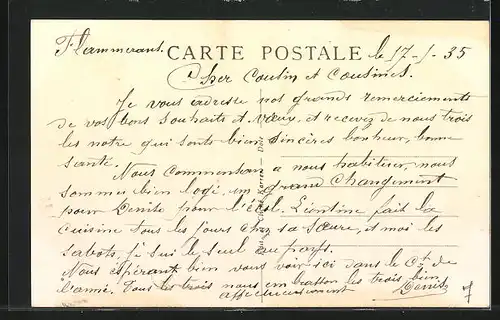 Flammerans. CARTE POSTALE le 17-1-35
Cher Cousin et Cousines.
Je vous adresse nos grands remerciements
de vos bons souhaits et vœux, et recevez de nous trois
les notre qui sonts bien sincères bonheur, bonne
santé.
Nous commensons a nous habituer, nous
sommes bien logé, un grand changement
pour Denise pour l'école. Léontine fait la
cuisine tous les jours chez sa sœure, et moi les
sabots, je suis le seul au pays.
Nous espérant bien vous voir ici dans le Ct de
l'anné. Tous les trois nous embrassons les trois bien
affectueusement